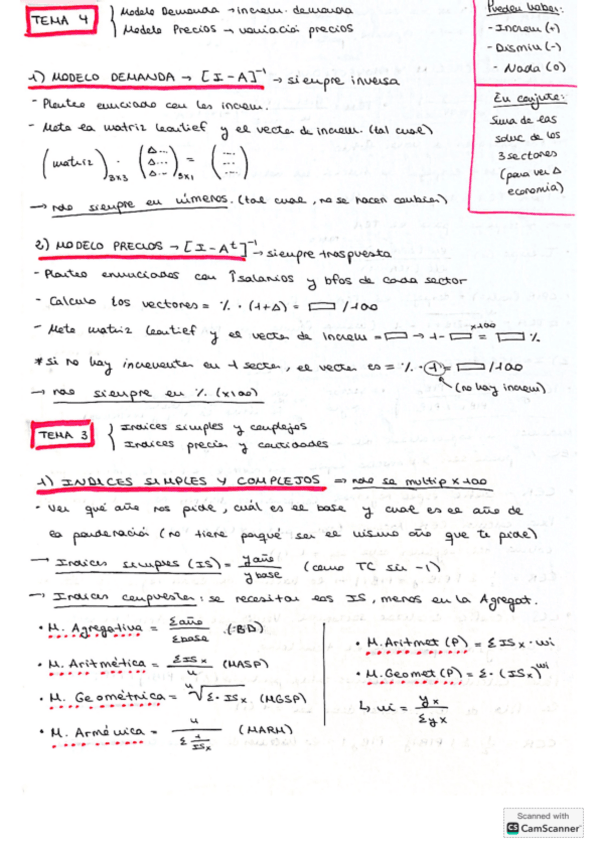 TEMA 4
Modelo Demanda → increm. demanda
Modelo Precios → variació precios
Pueden haber:
- Increm (+)
- Dismiu (-)
- Nada (0)
En conjute:
Suma de las
soluc de los
3 sectores
(para ver Δ
economia)
1) MODELO DEMANDA → [I-A]⁻¹ → siempre inversa
- Planteo enunciado con los increm.
- Meto la matriz leontief y el vector de increm. (tal cual)
(matriz)₃ₓ₃ · (Δ... Δ... Δ...)₃ₓ₁ = (--- --- ---)
→ rdo siempre en números. (tal cual, no se hacen cambios)
2) MODELO PRECIOS → [I-Aᵗ]⁻¹ → siempre traspuesta
- Planteo enunciados con ↑salarios y bfos de cada sector
- Calculo los vectores = % · (1+Δ) = ▭ /100
- Meto matriz leontief y el vector de increm = ▭ → 1- ▭ x100 = ▭ %
* si no hay incremento en 1 sector, el vector es = % · 1 = ▭ /100
(no hay increm)
→ rdo siempre en % (x100)
TEMA 3
Indices simples y complejos
Indices precios y cantidades
1) INDICES SIMPLES Y COMPLEJOS ⇒ rdo se multip x100
· Ver qué año nos pide, cuál es el base y cual es el año de
la ponderación (no tiene porqué ser el mismo año que te pide)
→ Indices simples (IS) = y año / y base (como TC sin -1)
→ Indices compuestos: se necesitan los IS, menos en la Agregat.
· M. Agregativa = Σaño / Σbase (·BD)
· M. Aritmética = ΣISx / n (MASP)
· M. Geométrica = ⁿ√Σ·ISx (MGSP)
· M. Armónica = n / Σ 1/ISx (MARM)
· M. Aritmet (P) = Σ ISx · wi
· M. Geomet (P) = Σ · (ISx)^wi
↳ wi = yx / Σyx
Scanned with
CS CamScanner